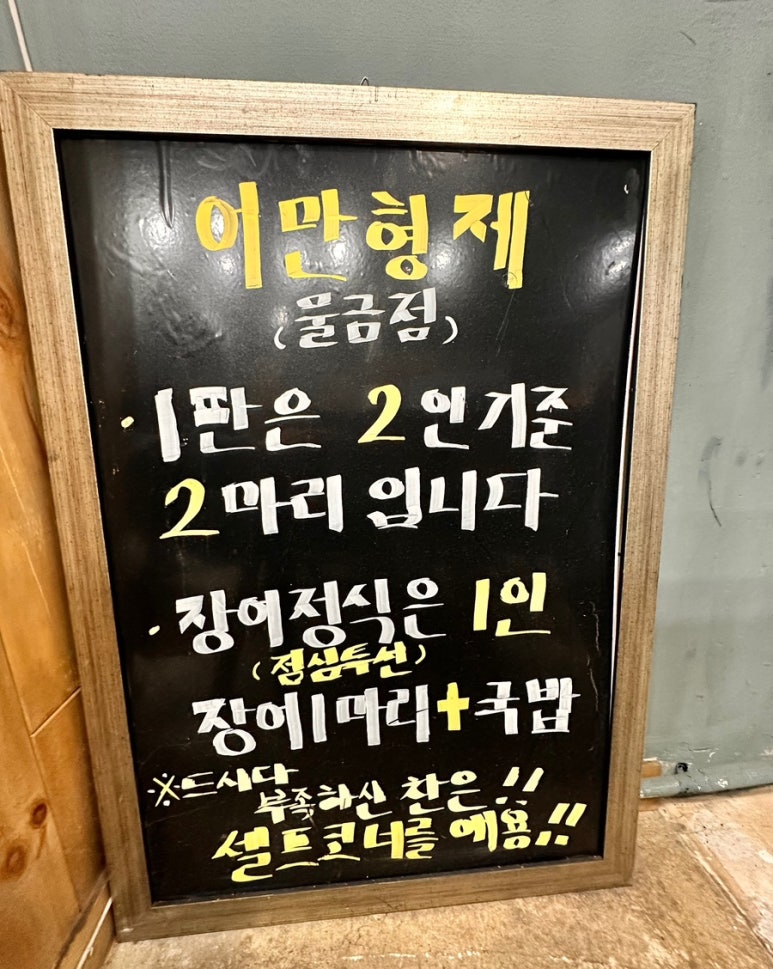 이만형제
(물금점)
· 1판은 2인기준
2마리 입니다
· 장어정식은 1인
(점심특선)
장어1마리+국밥
※드시다
부족하신 찬은!!
셀프코너를 애용!!